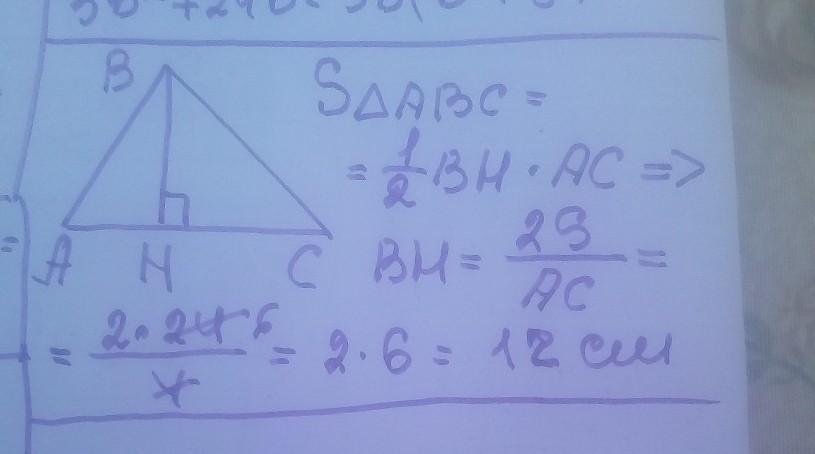 B
S△ABC =
= 1/2 BH · AC =>
A H C
BH = 2S/AC =
= 2·24 6/4 = 2·6 = 12 см